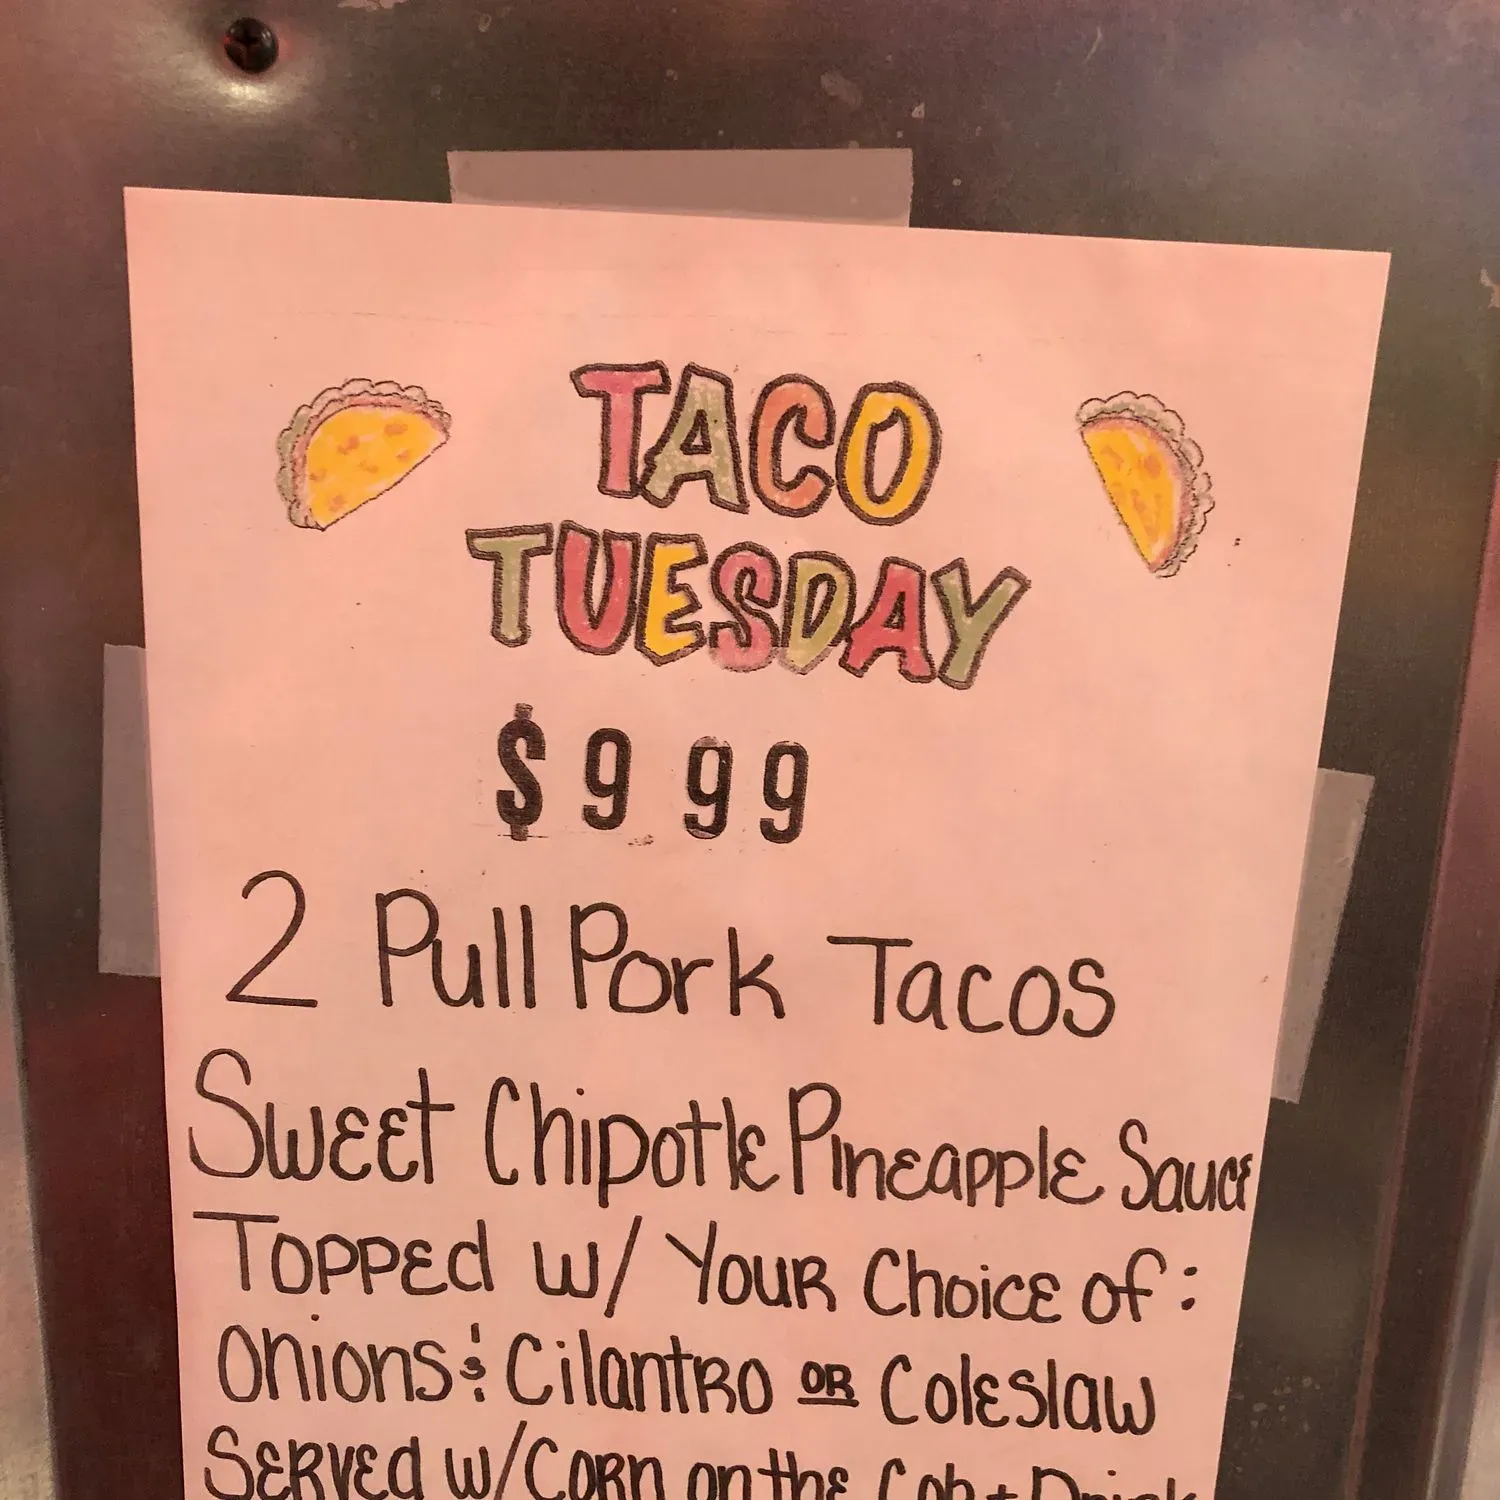 TACO
TUESDAY
$9 99
2 Pull Pork Tacos
Sweet Chipotle Pineapple Sauce
Topped w/ Your Choice of:
Onions & Cilantro OR Coleslaw
Served w/Corn on the Cob + Drink